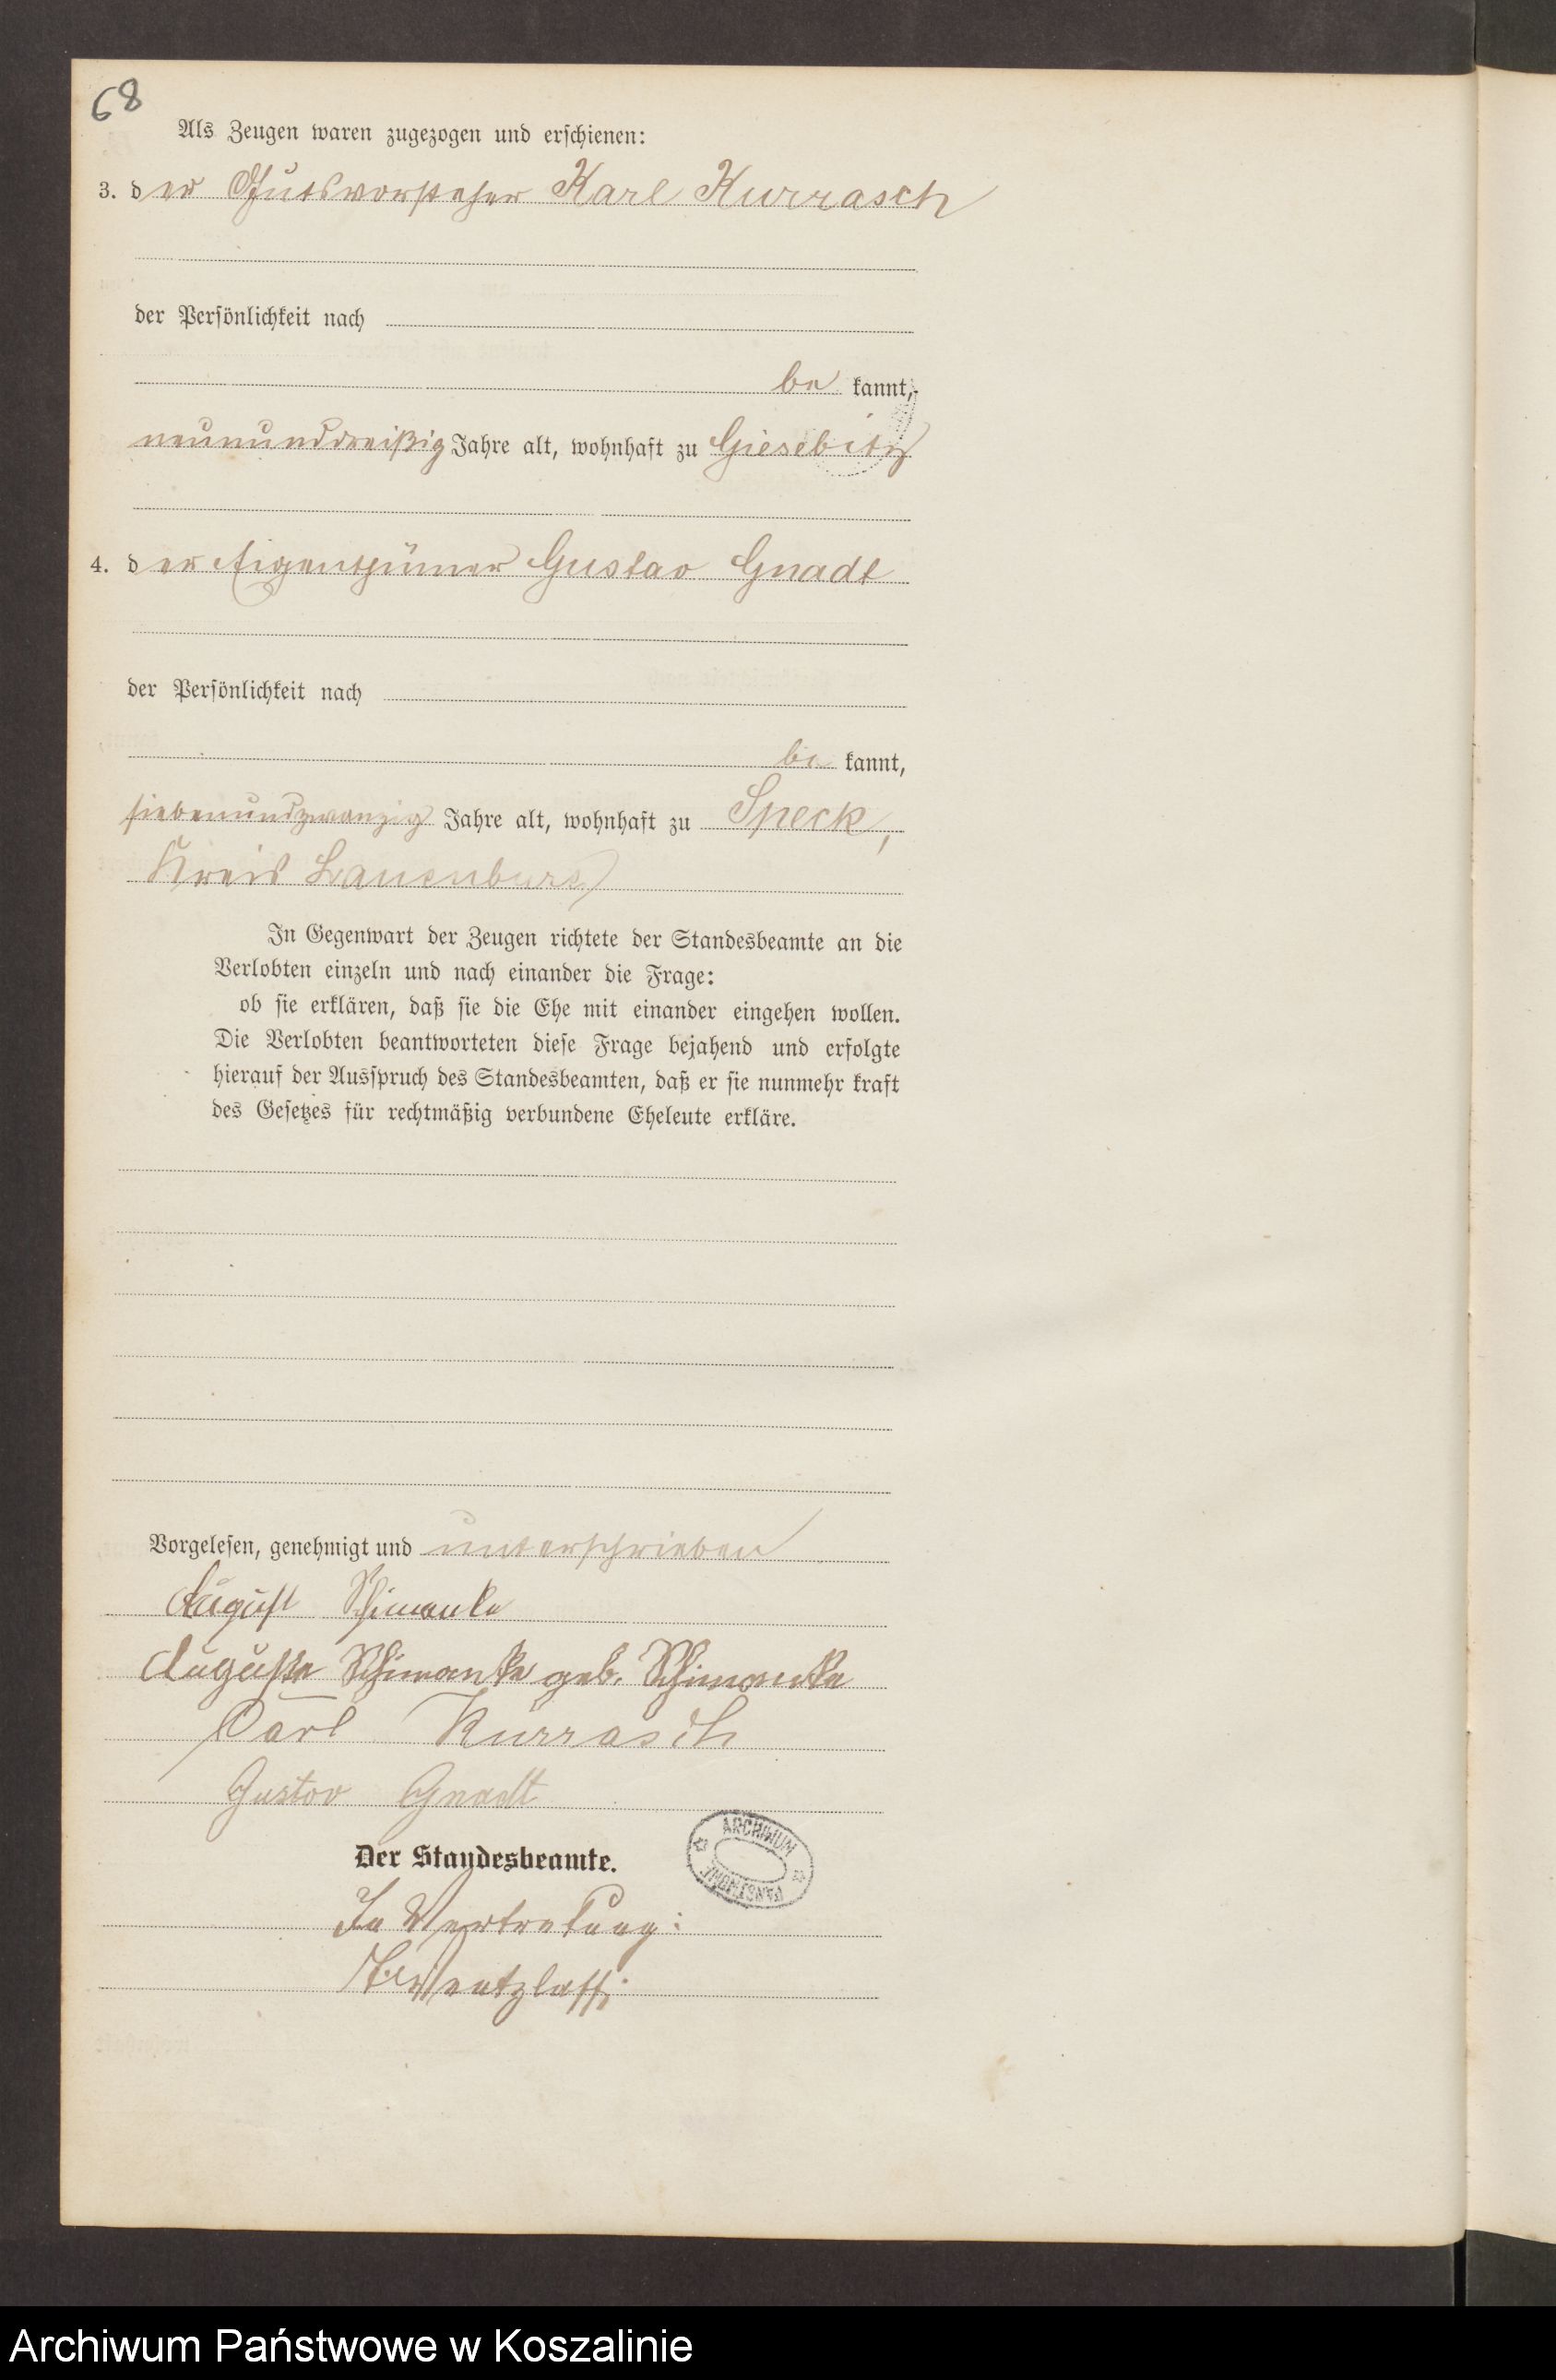 68
Als Zeugen waren zugezogen und erschienen:
3. der Gutsvorsteher Karl Kurrasch
der Persönlichkeit nach
be kannt,
neununddreißig Jahre alt, wohnhaft zu Giesebitz
4. der Eigenthümer Gustav Gnadt
der Persönlichkeit nach
be kannt,
siebenundzwanzig Jahre alt, wohnhaft zu Speck,
Kreis Lauenburg
In Gegenwart der Zeugen richtete der Standesbeamte an die
Verlobten einzeln und nach einander die Frage:
ob sie erklären, daß sie die Ehe mit einander eingehen wollen.
Die Verlobten beantworteten diese Frage bejahend und erfolgte
hierauf der Ausspruch des Standesbeamten, daß er sie nunmehr kraft
des Gesetzes für rechtmäßig verbundene Eheleute erkläre.
Vorgelesen, genehmigt und unterschrieben
August Schimanke
Auguste Schimanke geb. Schimanke
Carl Kurrasch
Gustav Gnadt
ARCHIWUM PAŃSTWOWE
Der Standesbeamte.
In Vertretung:
Wentzlaff.
Archiwum Państwowe w Koszalinie